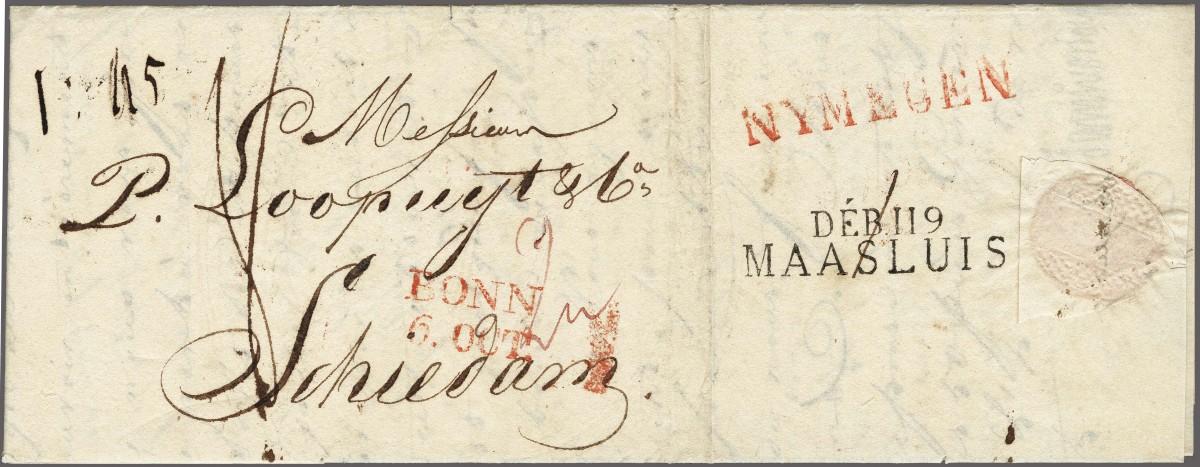 Messieurs
P. Loopuyt & Co
Schiedam.
BONN
6. OCT
NYMEGEN
DÉB. 119
MAASLUIS